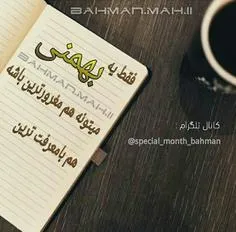 BAHMAN.MAH.II
فقط یه
بهمنی
BAHMAN.MAH.II
میتونه هم مغرورترین باشه
هم بامعرفت ترین
کانال تلگرام :
@special_month_bahman